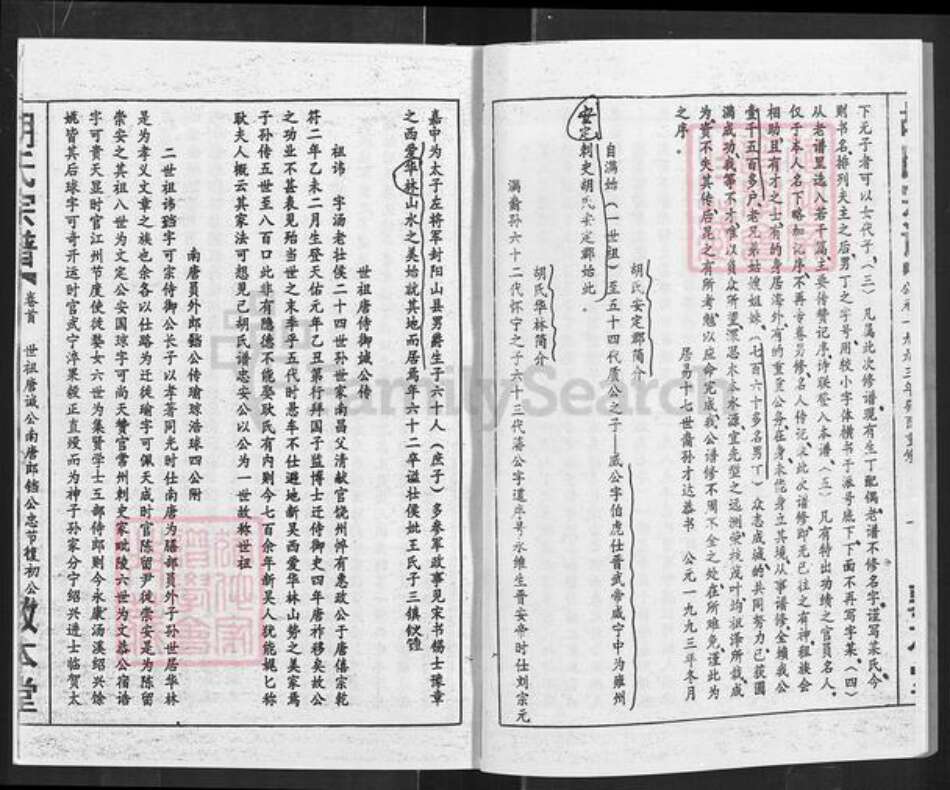 下无子者可以士代子、(三)凡属此次修谱、现有生丁配偶、老谱不修名字谨写某氏、今
则书名、排列夫主之后、男丁之字号用较小字体横书于派号底下、下面不再写字某、(四)
从老谱里选入若干篇、主要传赞记序、诗联登入本谱、(五)凡有特出功绩之官员名人、
仅于本人名下略加记序、不再专卷另修名人传记、
相助、且有才之士有的身居海外、有的重重公务在身、未能身立其境、从事谱修、金赖我公
壹千五百多户、老兄弟姑嫂姐妹、(七百六十多名男丁)众志成城的共同努力、已获圆
满成功、我等不才、难以负众所望、深思木本水源、宜先茔之远溯、荣枝茂叶、均祖泽所敷、成
为贵不失其传、后昆之有所考、勉以应命完成、我公谱修不周不全之处、在所难免、谨此为
之序。
居易十七世裔孙才达恭书 公元一九九三年冬月
胡氏安定郡简介
自满始(一世祖)至五十四代质公之子——威公字伯虎仕晋武帝咸宁中为雍州
安定刺史胡氏安定郡始此。
胡氏华林简介
满裔孙六十二代怀宁之子六十三代藩公字道序号永维生晋安帝时仕刘宗元
嘉中为太子左将军封阳山县男爵生子六十人(庶子)多参军政事见宋书锡士豫章
之西爱华林山水之美始就其地而居焉年六十二卒谥壮侯妣王氏子三镇钦锺
世祖唐侍御诚公传
祖讳 字汤老壮侯二十四世孙世家南昌父清献官饶州倅有惠政公于唐僖宗乾
符二年乙未二月生登天佑元年乙丑第行拜国子监博士迁侍御史四年唐祚移矣故公
之功业不甚表见殆当世之末季乎五代时悉牟不仕避地新吴西爱华林山势之美家焉
子孙传五世至八百口此非有隐德不能娶耿氏有内则今七百余年新吴人犹能娓匕称
耿夫人概云其家法可想见已胡氏谱忠安公以公为一世故称世祖
南唐员外郎铛公传瑜琼浩球四公附
二世祖讳铛字可宗侍御公长子以孝著同光时仕南唐为膳部员外子孙世居华林
是为孝义文章之族也余各以仕路为迁徙瑜字可佩天成时官陈留尹徙崇安是为陈留
崇安之其祖八世为文定公安国琼字可尚天赞官常州刺史家毗陵六世为文恭公宿浩
字可贵天显时官江州节度使徒婺女六世为集贤学士五部侍郎则今永康汤溪绍兴馀
姚皆其后球字可奇开运时官武宁淖果毅正直殁而为神子孙家分宁绍兴进士临贺太
胡氏宗谱 卷首 世祖唐诚公南唐郎铛公忠节模初公 敦本堂
公元一九九三年癸酉重修
FamilySearch